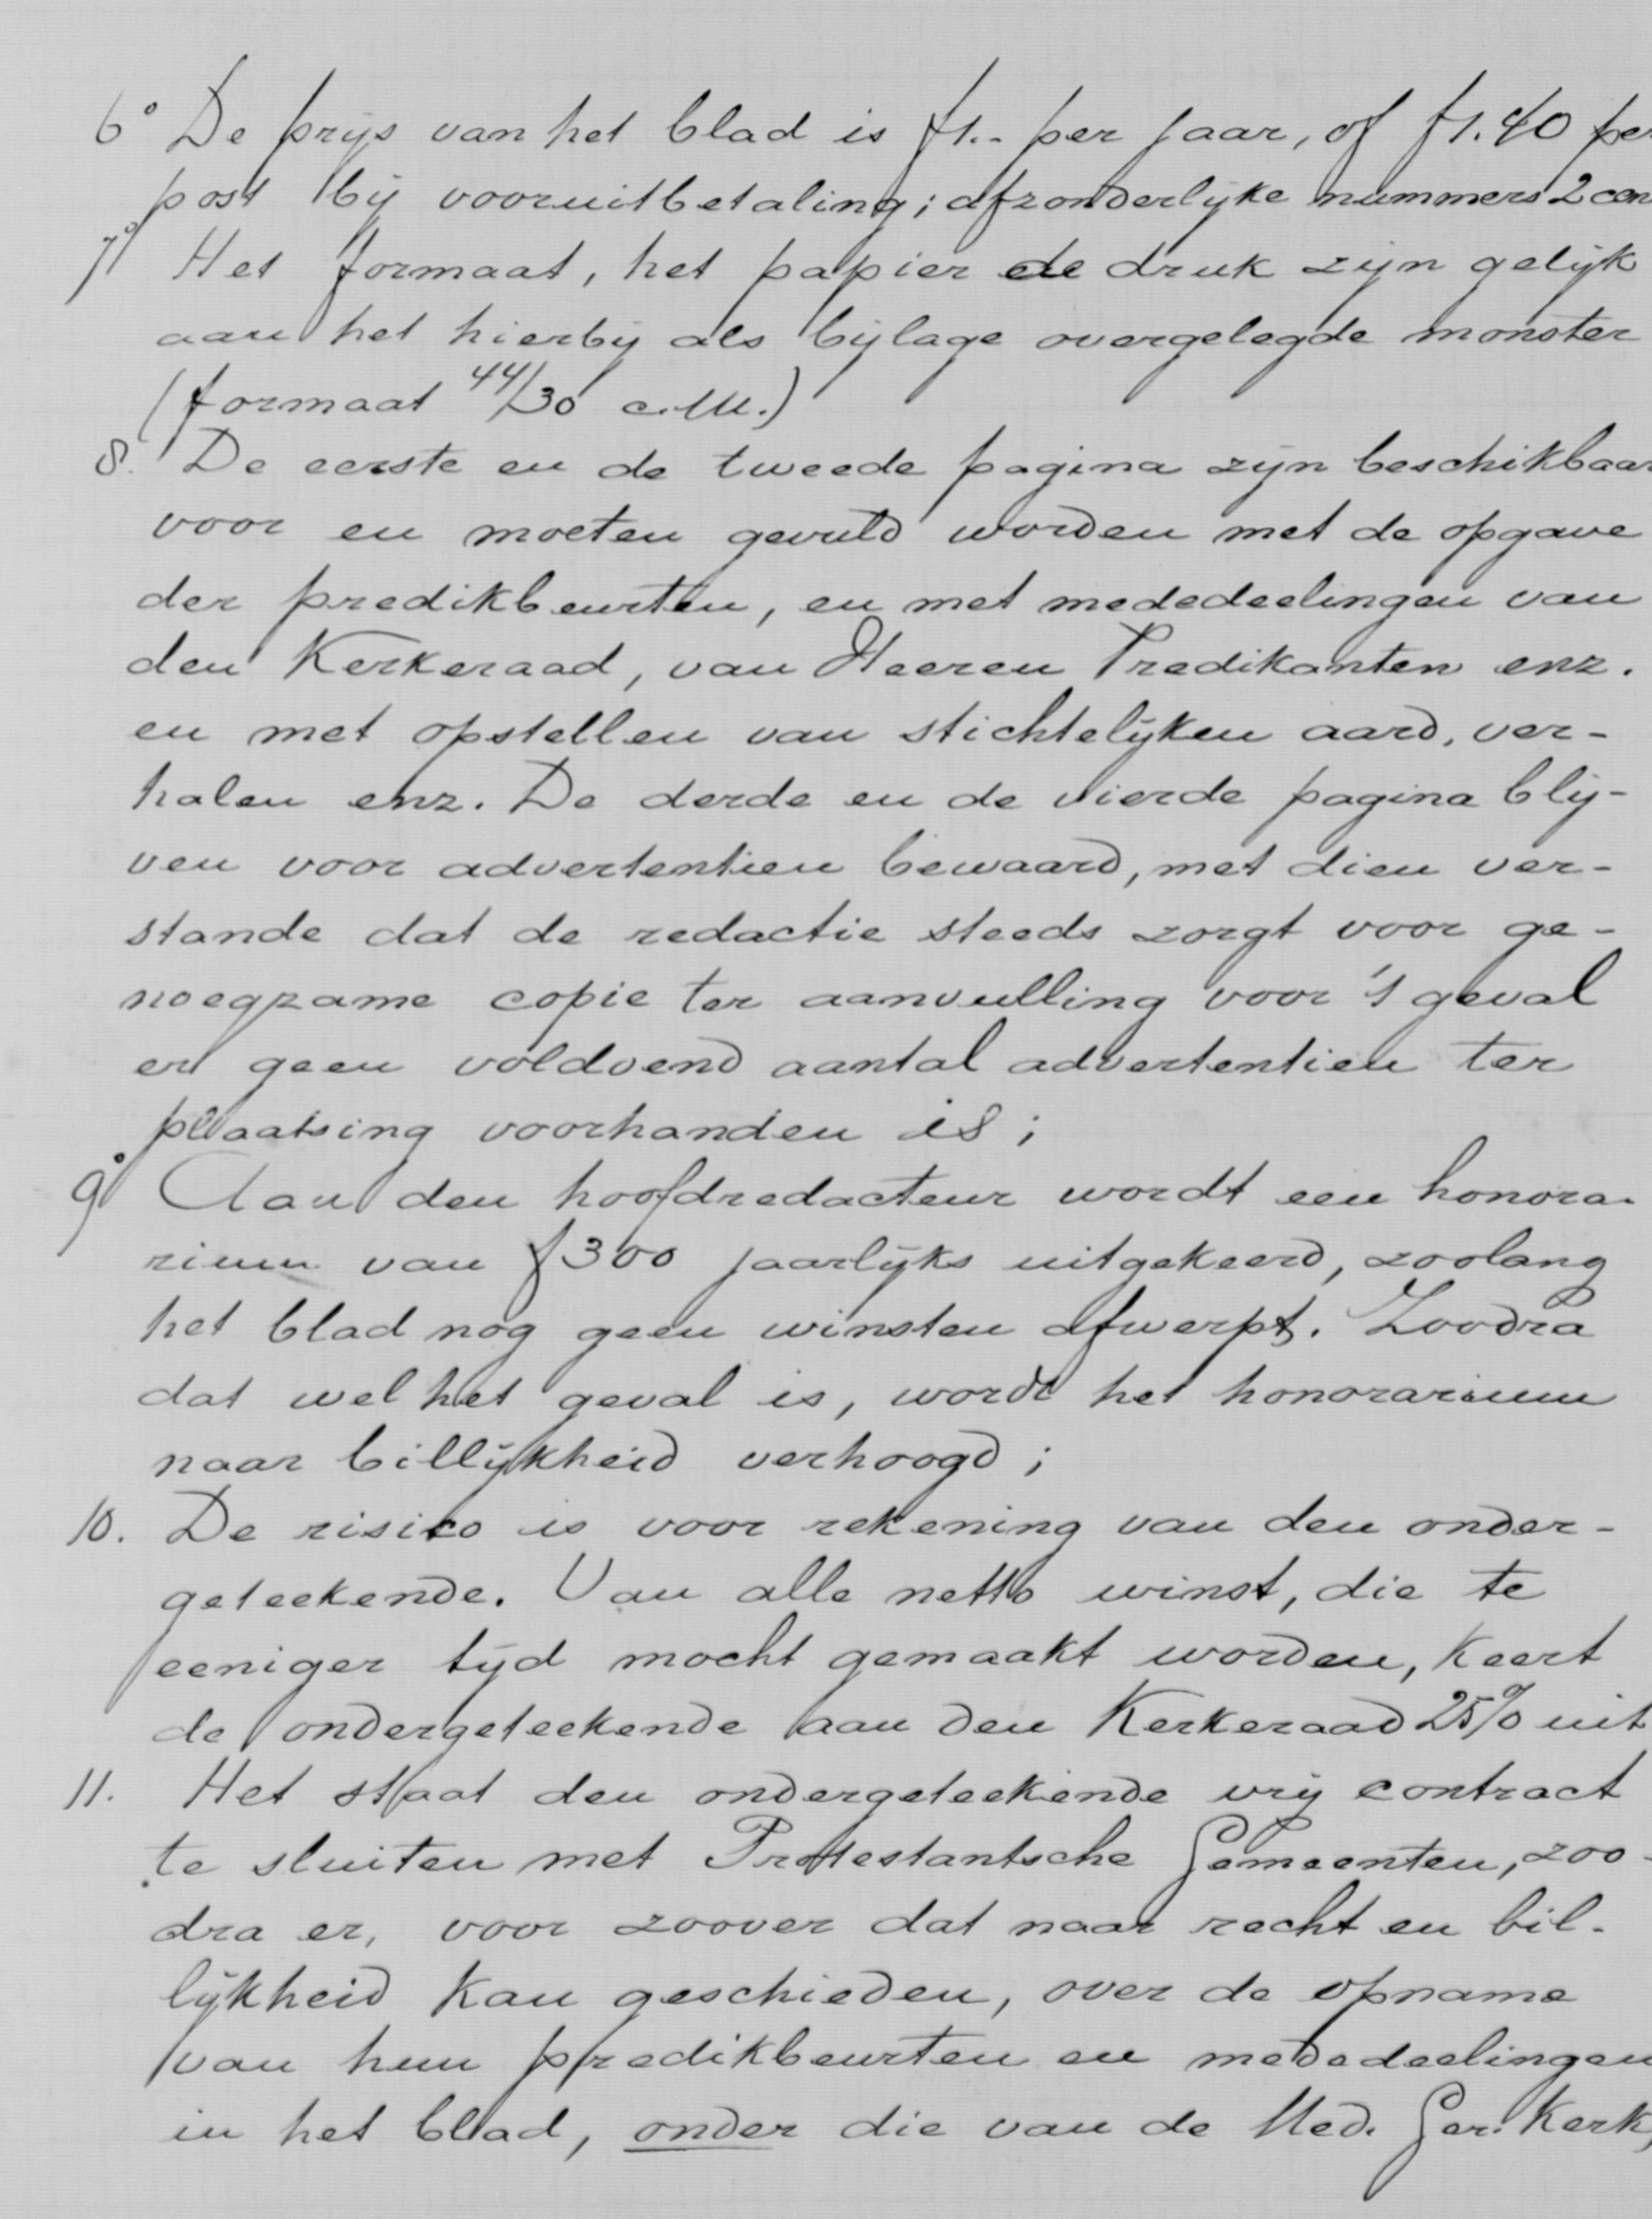 6° De prijs van het blad is f1.- per jaar, of f1.40 per
post bij vooruitbetaling; afzonderlijke nummers 2 cen
7° Het formaat, het papier de druk zijn gelijk
aan het hierbij als bijlage overgelegde monster
(formaat 44/30 c.M.)
8. De eerste en de tweede pagina zijn beschikbaar
voor en moeten gevuld worden met de opgave
der predikbeurten, en met mededeelingen van
den Kerkeraad, van Heeren Predikanten enz.
en met opstellen van stichtelijken aard, ver-
halen enz. De derde en de vierde pagina blij-
ven voor advertentien bewaard, met dien ver-
stande dat de redactie steeds zorgt voor ge-
noegzame copie ter aanvulling voor 't geval
er geen voldoend aantal advertentien ter
plaatsing voorhanden is;
9° Aan den hoofdredacteur wordt een honora-
rium van f300 jaarlijks uitgekeerd, zoolang
het blad nog geen winsten afwerpt. Zoodra
dat wel het geval is, wordt het honorarium
naar billijkheid verhoogd;
10. De risico is voor rekening van den onder-
geteekende. Van alle netto winst, die te
eeniger tijd mocht gemaakt worden, keert
de ondergeteekende aan den Kerkeraad 25% uit
11. Het staat den ondergeteekende vrij contract
te sluiten met Protestantsche Gemeenten, zoo-
dra er, voor zoover dat naar recht en bil-
lijkheid kan geschieden, over de opname
van hun predikbeurten en mededeelingen
in het blad, onder die van de Ned. Ger. Kerk,